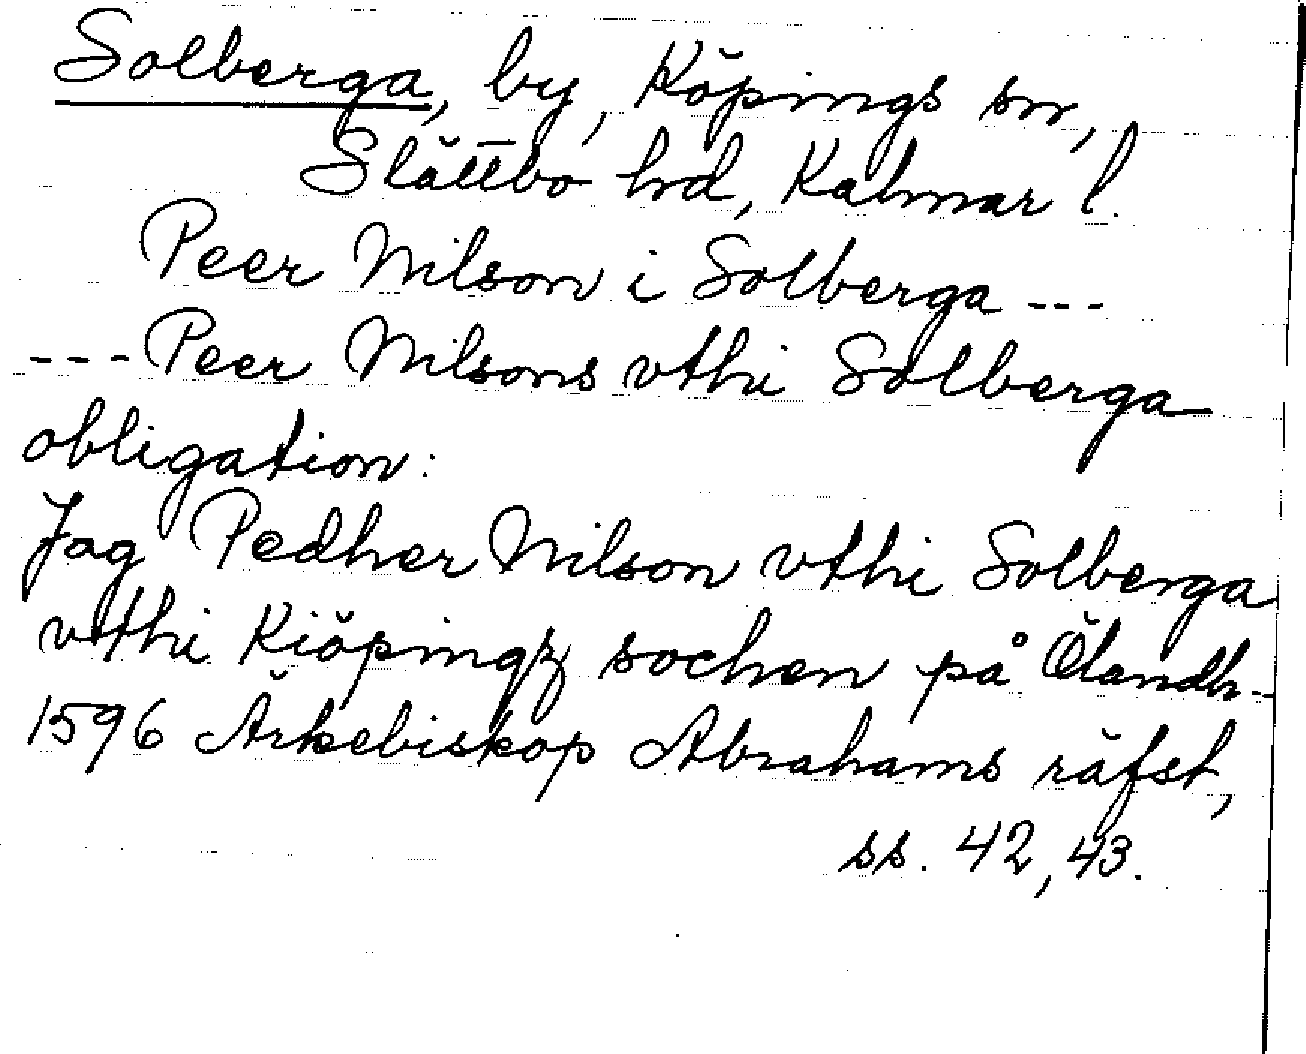 Solberga, by, Köpings sn,
Slättbo hd, Kalmar l.
Peer Nilson i Solberga ---
--- Peer Nilsons vthi Solberga
obligation:
Jag Pedher Nilson vthi Solberga
vthi Kiöpingz sochen på Ölandh -
1596 Ärkebiskop Abrahams räfst,
ss. 42, 43.